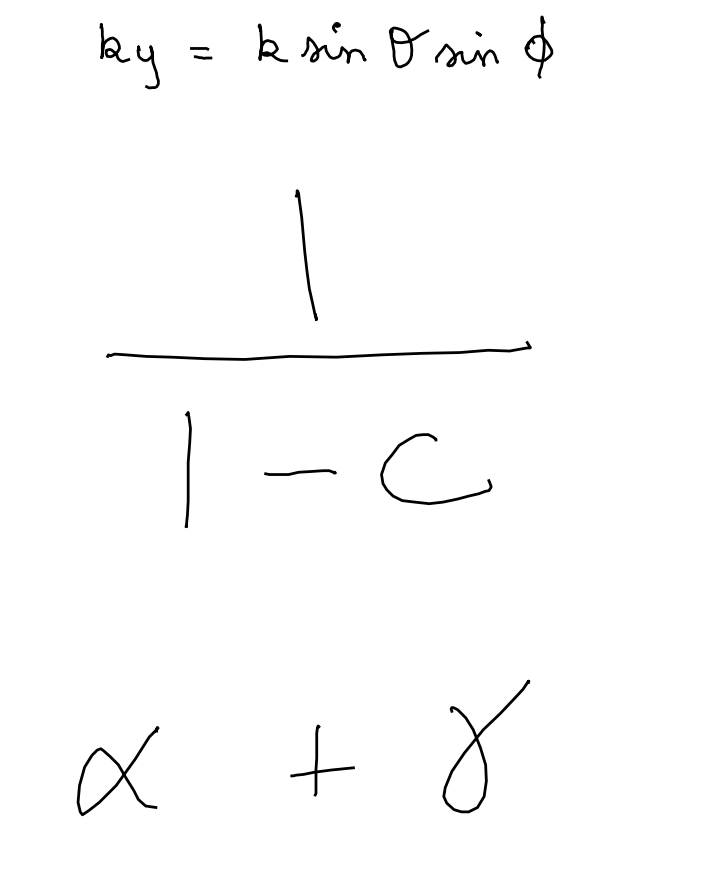 ky = k sin θ sin ϕ
1
1 - c
α + γ